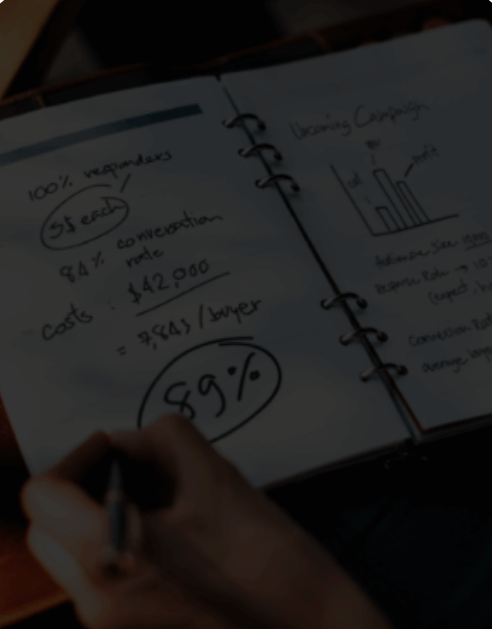 100% responders
5$ each
84% conversation
rate
costs : $42,000
= 7,84$ / buyer
89%
Upcoming Campaign
cost
profit
Audience size
Response Rate → 10
(expect,
conversion Rat
average